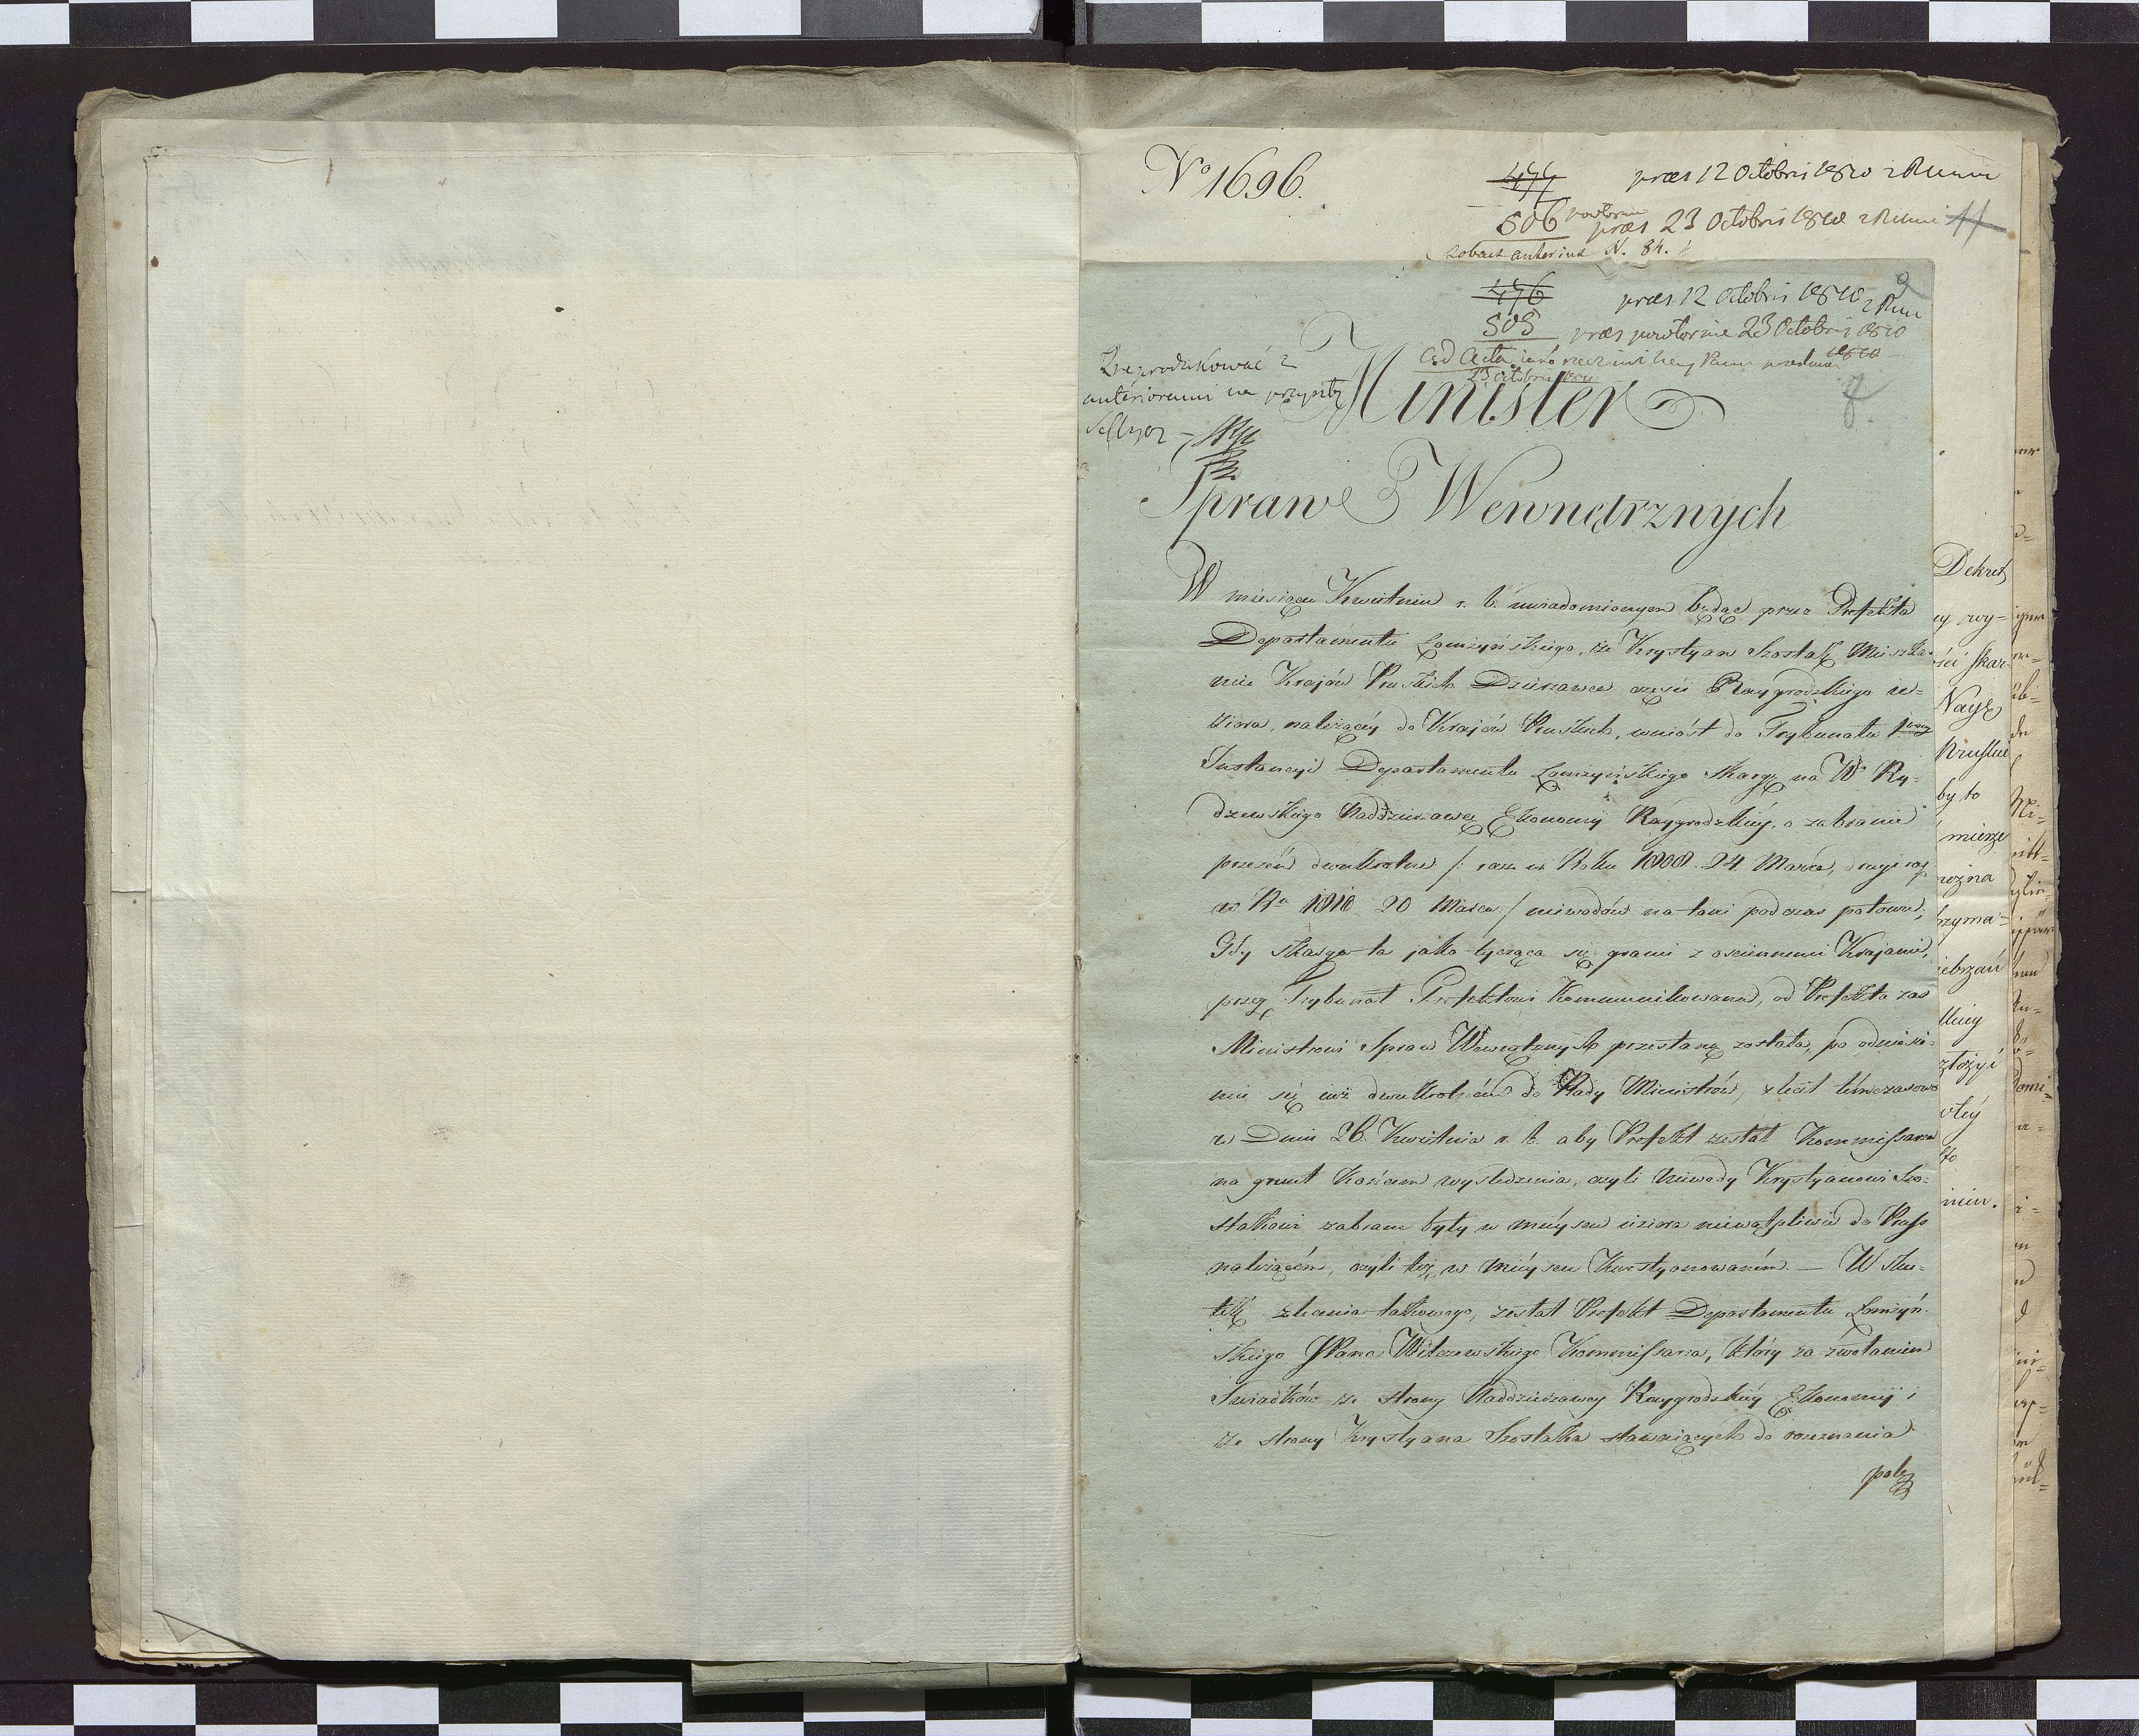 No 1696.
477 præs 12 Octobris 1810 z Rumu
506 powtornie præs 23 Octobris 1810 z Rumu 11
zobacz anteriora N. 84.
476 præs 12 Octobris 1810 z Rum 9
505 præs powtornie 23 Octobris 1810
ad Acta
23 octobris
Zreprodukować z
anterioremi na przyszłą
Sessyą
Minister 7
Spraw Wewnętrznych
W miesiącu Kwietniu r. b. uwiadomionym będąc przez Prefekta
Departamentu Łomżyńskiego, że Krystyan Szostak Mieszka-
niec Krajów Pruskich Dzierzawca części Raygrodzkiego je-
ziora, należącey do Krajów Pruskich, wniósł do Trybunału 1wszey
Instancyi Departamentu Łomżyńskiego skargę na W. Ry-
dzewskiego Naddzierzawcę Ekonomij Raygrodzkiéy, o zabranie
przezeń dwukrotne /: raz w Roku 1808. 24 Marca, drugi raz
w Ru 1810 20 Marca :/ niewodów na-toni podczas połowu;
Gdy skarga-ta jako tycząca się granic z ościennemi Krajami,
przez Trybunał Prefektowi Kommunikowana, od Prefekta zas
Ministrowi Spraw Wewnętrznych przesłaną została, po odniesie-
niu się iuż dwukrotnem do Rady Ministrów, zlecił tymczasowo
w Dniu 26. Kwietnia r. b. aby Prefekt zesłał Kommissarza
na grunt końcem wyśledzenia, czyli niewody Krystyanowi Szo-
stakowi zabrane były w mieyscu jeziora niewątpliwie do Pruss
należącém, czyli też w mieyscu Kwestyonowaném. — W sku-
tek zlecenia takowego, zesłał Prefekt Departamentu Łomżyń-
skiego JPana Wilczewskiego Kommissarza, który za zwołaniem
Swiadków ze strony Naddzierzawcy Raygrodzkiéy Ekonomij i
ze strony Krystyana Szostaka stawaiących do rozeznania
Dekret
ey wy-
ości skar-
Nayż
Pruskie
by to
mierze
ożna
trzyma-
iebrzań
lkiey
złożyć
otéy
sto
niem.